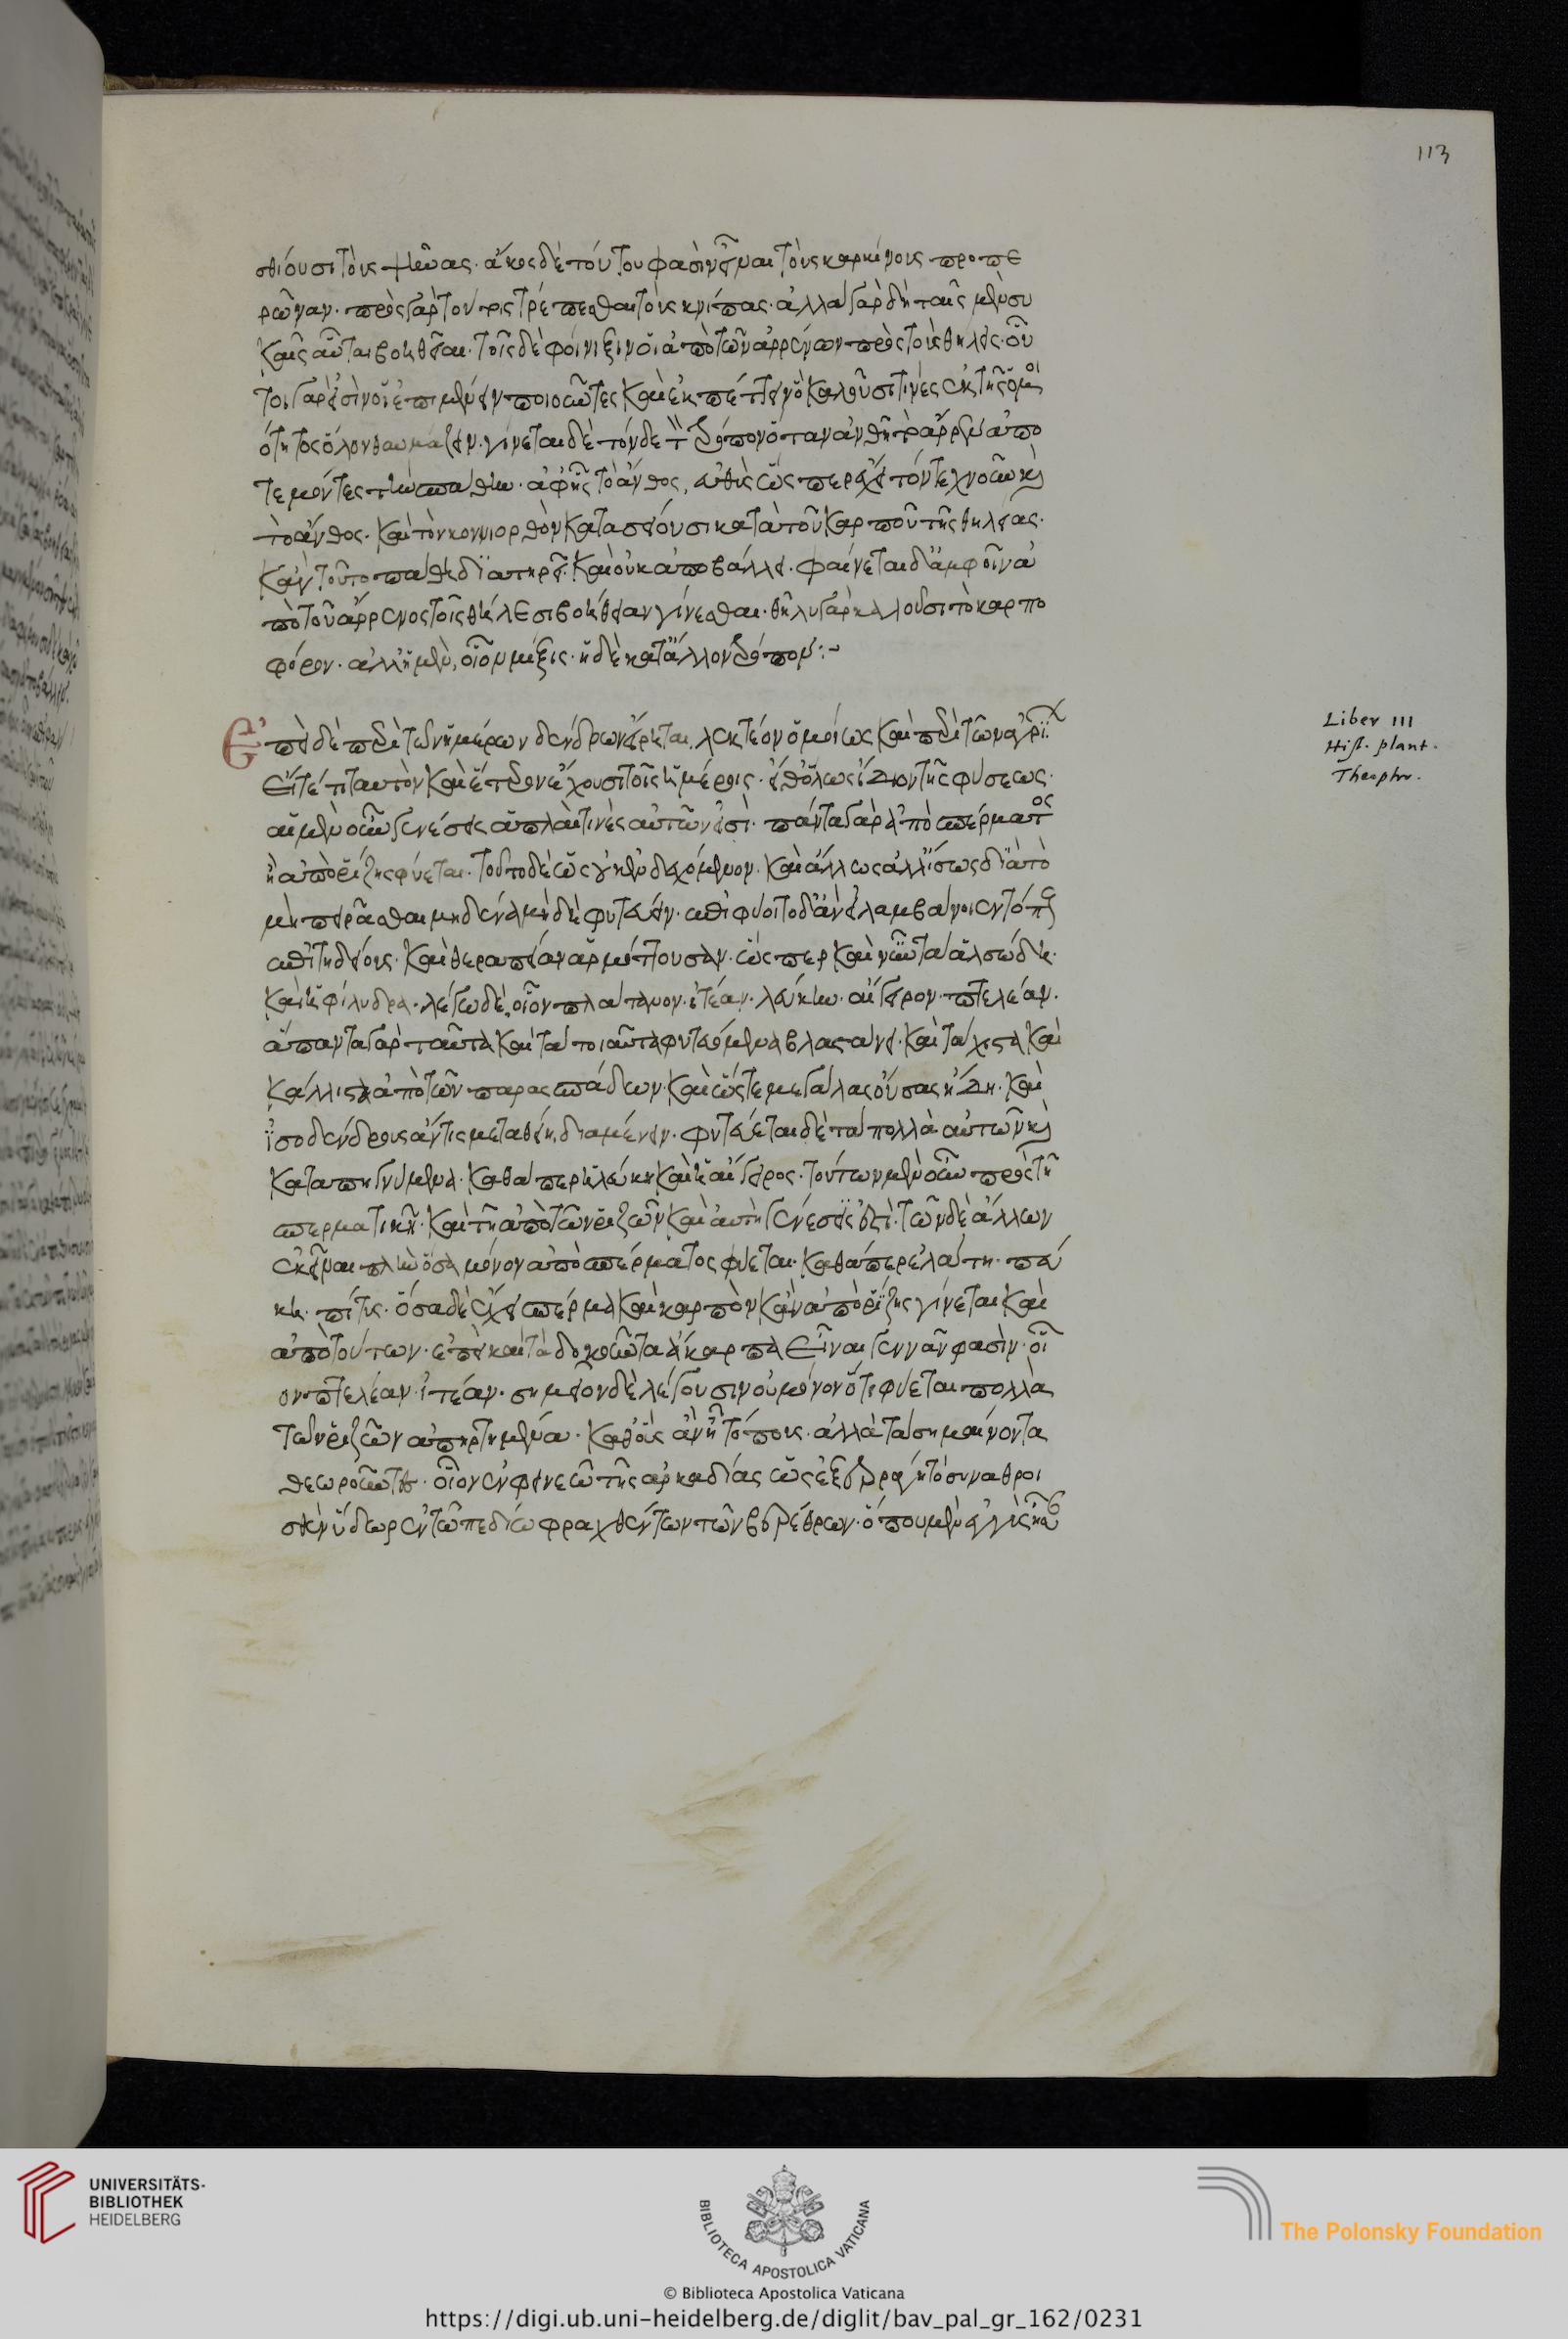 113
σθίουσι τοὺς ψῆνας· ἄκος δὲ τούτου φασὶν εἶναι τοὺς καρκίνους προσπε
ρωναν· πρὸς γὰρ τούτοις τρέπεσθαι τοὺς κνίπας· ἀλλὰ γὰρ δὴ ταῖς μὲν συ
καῖς αὗται βοήθειαι· τοῖς δὲ φοίνιξιν αἱ ἀπὸ τῶν ἀρρένων πρὸς τοὺς θήλεις· οὗ
τοι γάρ εἰσὶν οἳ ἐπιμένειν ποιοῦντες καὶ ἐκπέττειν ὃ καλοῦσι τινὲς ἐκ τῆς ὁμοι
ότητος ὀλονθαυμάζειν· γίνεται δὲ τόνδε τ τρόπον ὅταν ἀνθῆ τὸ ἄρρεν ἀπο
τεμόντες τὴν σπάθην· ἀφ' ἧς τὸ ἄνθος, εὐθὺς ὥσπερ ἔχει τόν τε χνοῦν καὶ
τὸ ἄνθος· καὶ τὸν κονιορτὸν κατασείουσι κατὰ τοῦ καρποῦ τῆς θηλείας·
κἂν τοῦτο πάθη διατηρεῖ· καὶ οὐκ ἀποβάλλει· φαίνεται δ' ἀμφοῖν ἀ
πὸ τοῦ ἄρρενος τοῖς θήλεσι βοήθειαν γίνεσθαι· θῆλυ γὰρ καλοῦσι τὸ καρπο
φόρον· ἀλλ' ἡ μὲν, οἷον μίξις· ἡ δὲ κατ' ἄλλον τρόπον:~
Ἐπεὶ δὲ περὶ τῶν ἡμέρων δένδρων εἴρηται, λεκτέον ὁμοίως καὶ περὶ τῶν ἀγρί
εἴ τέ τι ταυτὸν καὶ ἕτερον ἔχουσι τοῖς ἡμέροις· εἴθ' ὅλως ἴδιον τῆς φύσεως·
αἱ μὲν οὖν γενέσεις ἁπλαῖ τινὲς αὐτῶν εἰσί· πάντα γὰρ ἀπὸ σπέρματος
ἢ ἀπὸ ῥίζης φύεται· τοῦτο δὲ ὡς ἐνδεχόμενον· καὶ ἄλλως ἀλλ' ἴσως διὰ τὸ
μὴ πειρᾶσθαι μηδένα μηδὲ φυτεύειν· ἐπεὶ φύοιτο δ' ἂν εἰ λαμβάνοιεν τόπους
ἐπιτηδείους· καὶ θεραπείαν ἁρμόττουσαν· ὥσπερ καὶ νῦν τὰ ἀλσώδη·
καὶ φίλυδρα· λέγω δὲ, οἷον πλάτανον· ἰτέαν· λεύκην· αἴγειρον· πτελέαν·
ἅπαντα γὰρ ταῦτα καὶ τὰ τοιαῦτα φυτευόμενα βλαστάνει· καὶ τάχιστα καὶ
κάλλιστα ἀπὸ τῶν παρασπάδων· καὶ ὥστε μεγάλας οὔσας ἤδη· καὶ
ἰσοδένδρους ἄν τις μεταθείη, διαμένειν· φυτεύεται δὲ τὰ πολλὰ αὐτῶν καὶ
καταπηγνύμενα· καθάπερ ἡ λεύκη καὶ ἡ αἴγειρος· τούτων μὲν οὖν πρὸς τῆ
σπερματικῆ· καὶ τῆ ἀπὸ τῶν ῥιζῶν καὶ αὐτὴ γένεσις ἐστὶ· τῶν δὲ ἄλλων
ἐκεῖναι πλὴν ὅσα μόνον ἀπὸ σπέρματος φύεται· καθάπερ ἐλάτη· πεύ
κη· πίτυς· ὅσα δὲ ἔχει σπέρμα καὶ καρπὸν κἂν ἀπὸ ῥίζης γίνεται καὶ
ἀπὸ τούτων· ἐπεὶ καὶ τὰ δοκοῦντα ἄκαρπα εἶναι γεννᾶν φασὶν· οἷ
ον πτελέαν· ἰτέαν· σημεῖον δὲ λέγουσιν οὐ μόνον ὅτι φύεται πολλὰ
τῶν ῥιζῶν ἀπηρτημένα· καθ' οὓς ἂν ἦ τόπους· ἀλλὰ τὰ συμβαίνοντα
θεωροῦντες· οἷον ἐν φενεῶ τῆς ἀρκαδίας ὡς ἐξερράγη τὸ συναθροι
σθὲν ὕδωρ ἐν τῶ πεδίω φραχθέντων τῶν βερέθρων· ὅπου μὲν ἐγγὺς ἦν
Liber III
Hist. plant.
Theophr.
UNIVERSITÄTS-
BIBLIOTHEK
HEIDELBERG
BIBLIOTECA APOSTOLICA VATICANA
© Biblioteca Apostolica Vaticana
The Polonsky Foundation
https://digi.ub.uni-heidelberg.de/diglit/bav_pal_gr_162/0231